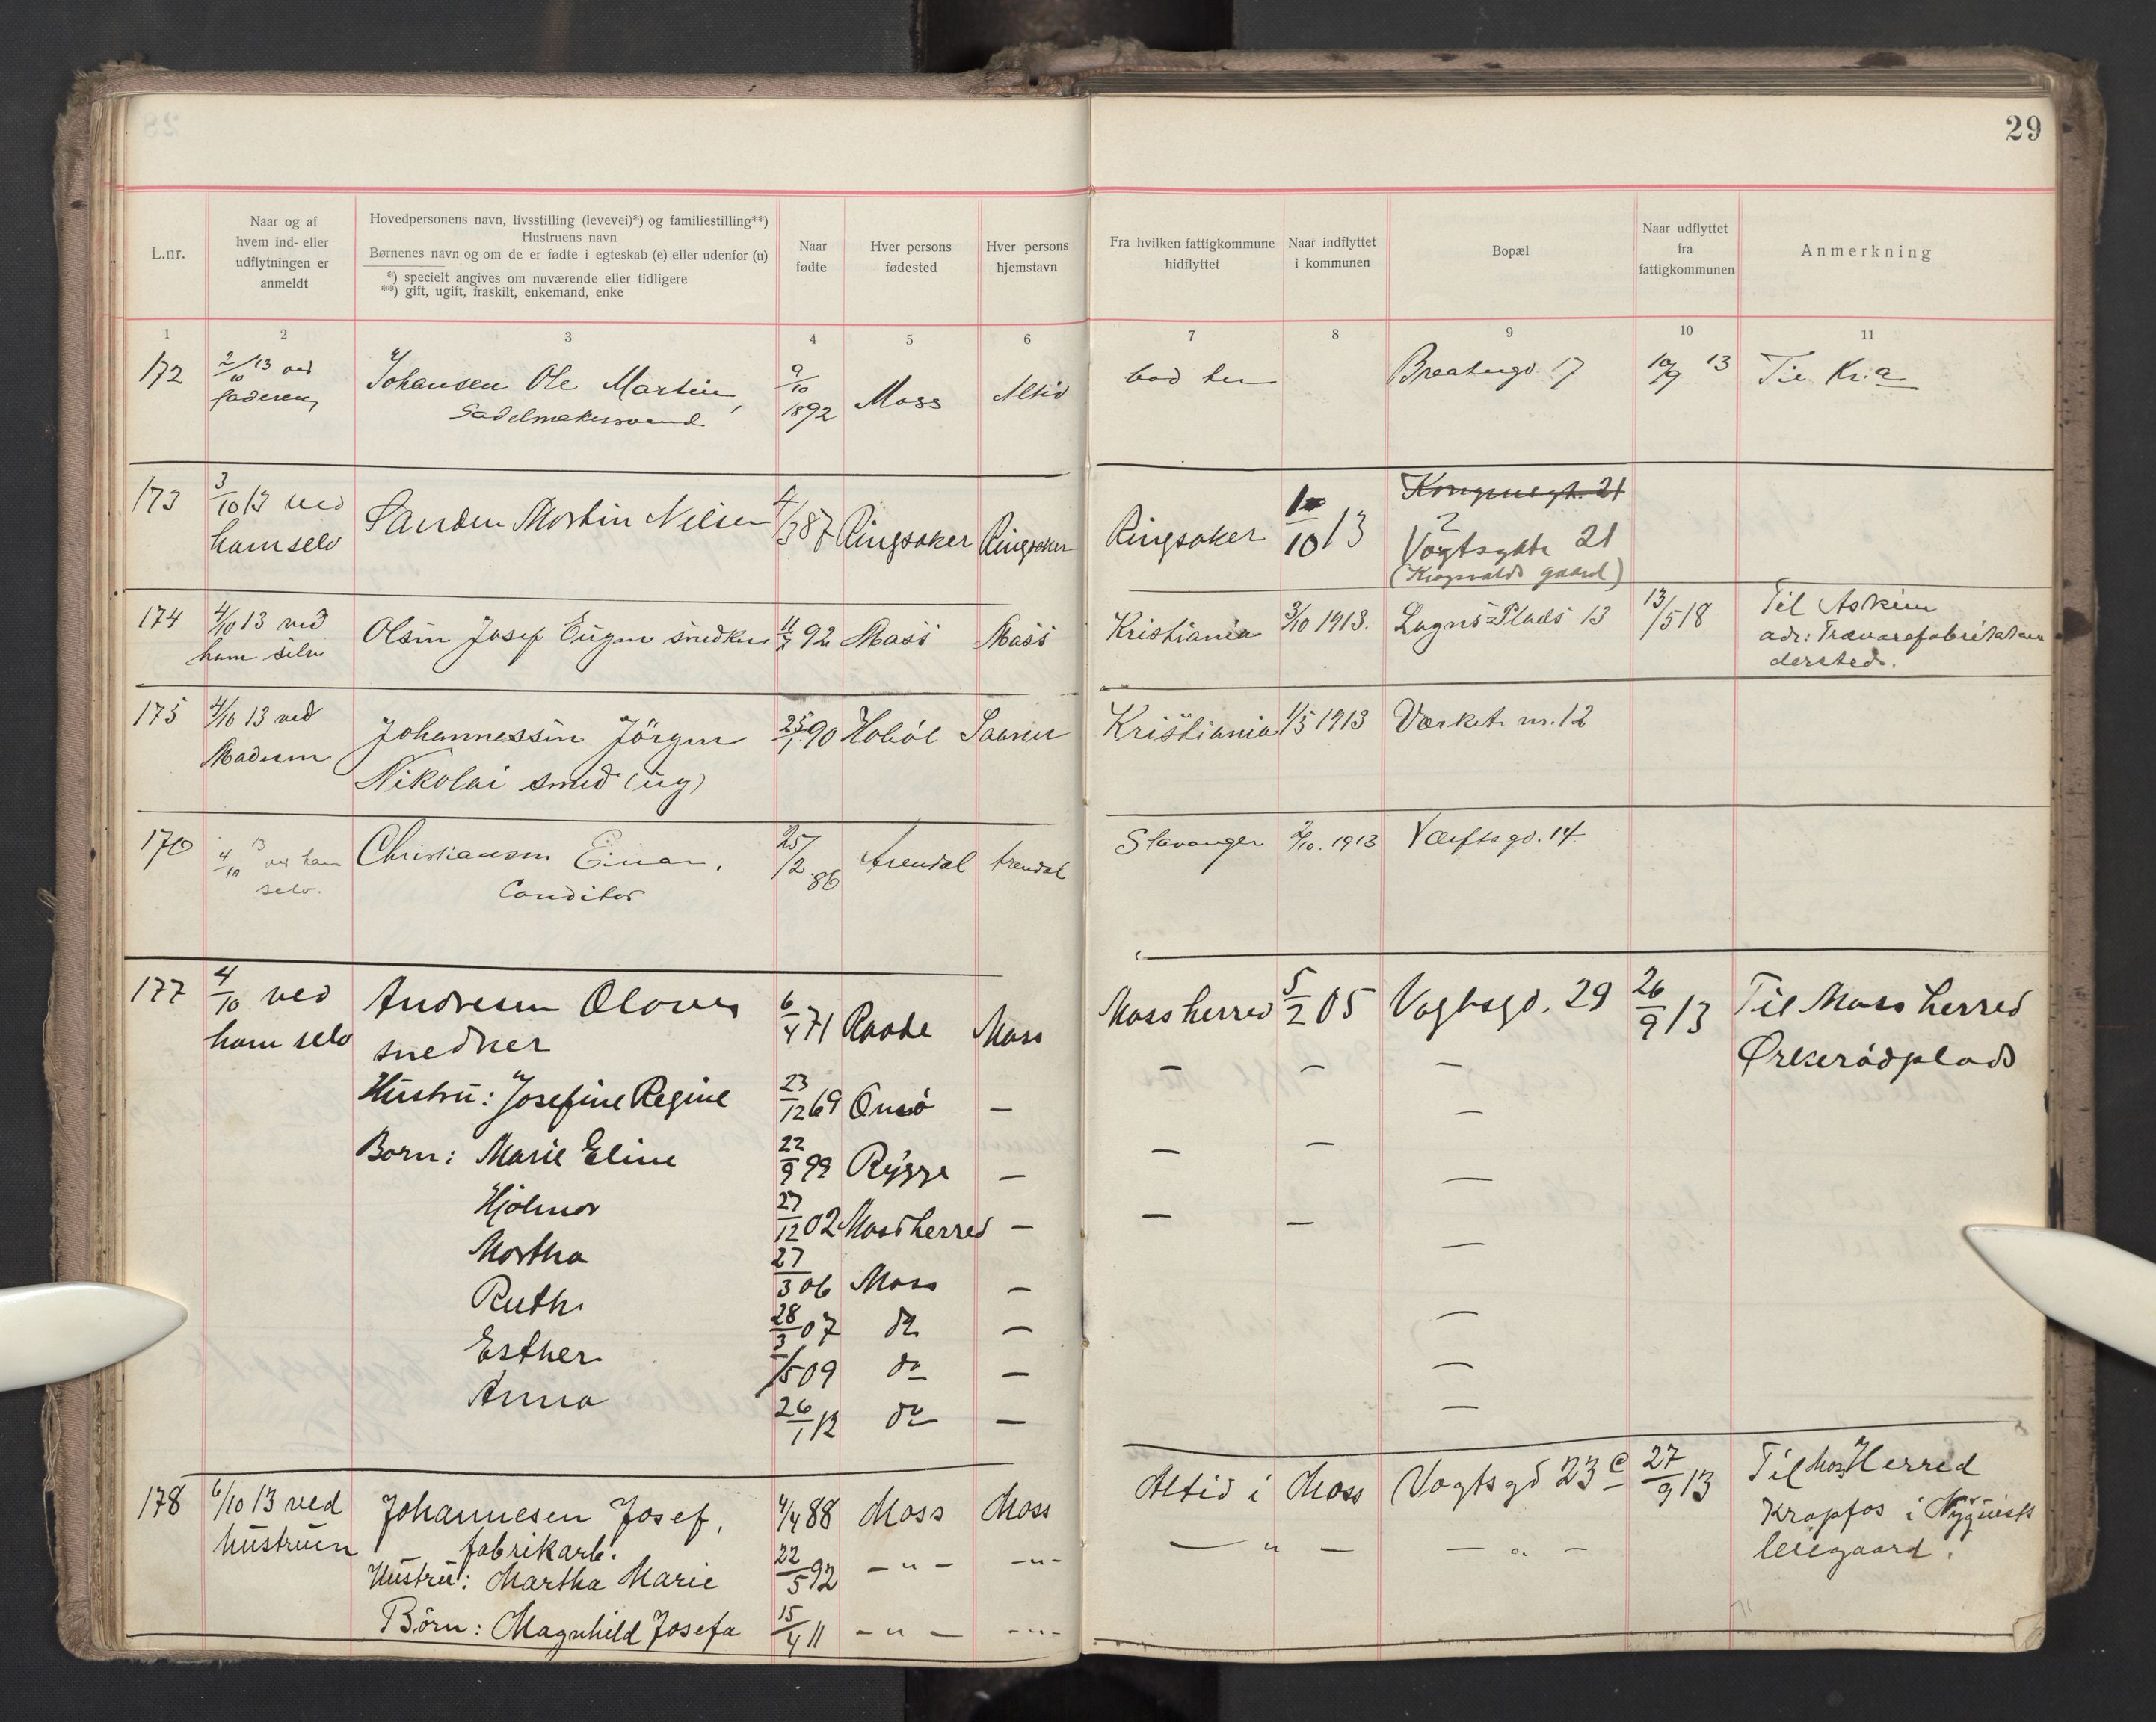 29
L.nr.
Naar og af
hvem ind- eller
udflytningen er
anmeldt
Hovedpersonens navn, livsstilling (levevei)*) og familiestilling**)
Hustruens navn
Børnenes navn og om de er fødte i egteskab (e) eller udenfor (u)
*) specielt angives om nuværende eller tidligere
**) gift, ugift, fraskilt, enkemand, enke
Naar
fødte
Hver persons
fødested
Hver persons
hjemstavn
Fra hvilken fattigkommune
hidflyttet
Naar indflyttet
i kommunen
Bopæl
Naar udflyttet
fra
fattigkommunen
Anmerkning
1 2 3 4 5 6 7 8 9 10 11
172 2/10 13 ved Johansen Ole Martin, 9/10 1892 Moss Altid bod her 17 10/9 13 Til Kr.a.
faderen Sadelmakersvend
173 3/10 13 ved Sanden Martin Nilsen 4/3 87 Ringsaker Ringsaker Ringsaker 1/10 13 Kongensgt. 21
ham selv Vogtsgate 21
(Kropvalds gaard)
174 4/10 13 ved Olsen Josef Eugen snedker 92 Moss Moss Kristiania 3/10 1913. Logns Plads 13 13/5 18 Til Askim
ham selv adr: Trævarefabrikken
dersteds.
175 4/10 13 ved Johannessen Jörgen 25/1 90 Hobøl Saaner Kristiania 1/5 1913 Værket nr. 12
Nikolai smed (ug)
176 4/10 13 ved ham Christiansen Einar, 25/2 86 Arendal Arendal Stavanger 2/10. 1913 Værftsgd. 14.
selv. Conditor
177 4/10 ved Andresen Oloves 6/4 71 Raade Moss Moss herred 5/2 05 Vogtsgd. 29 26/9 13 Til Moss herred
ham selv snedker — — — Ørkerödplads
Hustru: Josefine Regine 23/12 69 Onsö — —
Børn: Marie Eline 22/9 99 Rygge — — — —
Hjalmar 27/12 02 Moss herred — — — —
Martha 27/3 06 Moss — —
Ruth 28/3 07 do — —
Esther /5 09 do — —
Anna 26/1 12 do —
178 6/10 13 ved Johannesen Josef, 4/4 88 Moss Moss Altid i Moss Vogtsgd 23 c 27/9 13 Til Moss Herred
hustruen fabrikarb. Kropfos i Nyquists
Hustru: Martha Marie 22/5 92 — " — — " — — " — — " — leiegaard.
Børn: Magnhild Josefa 15/4 11 — " — — " —